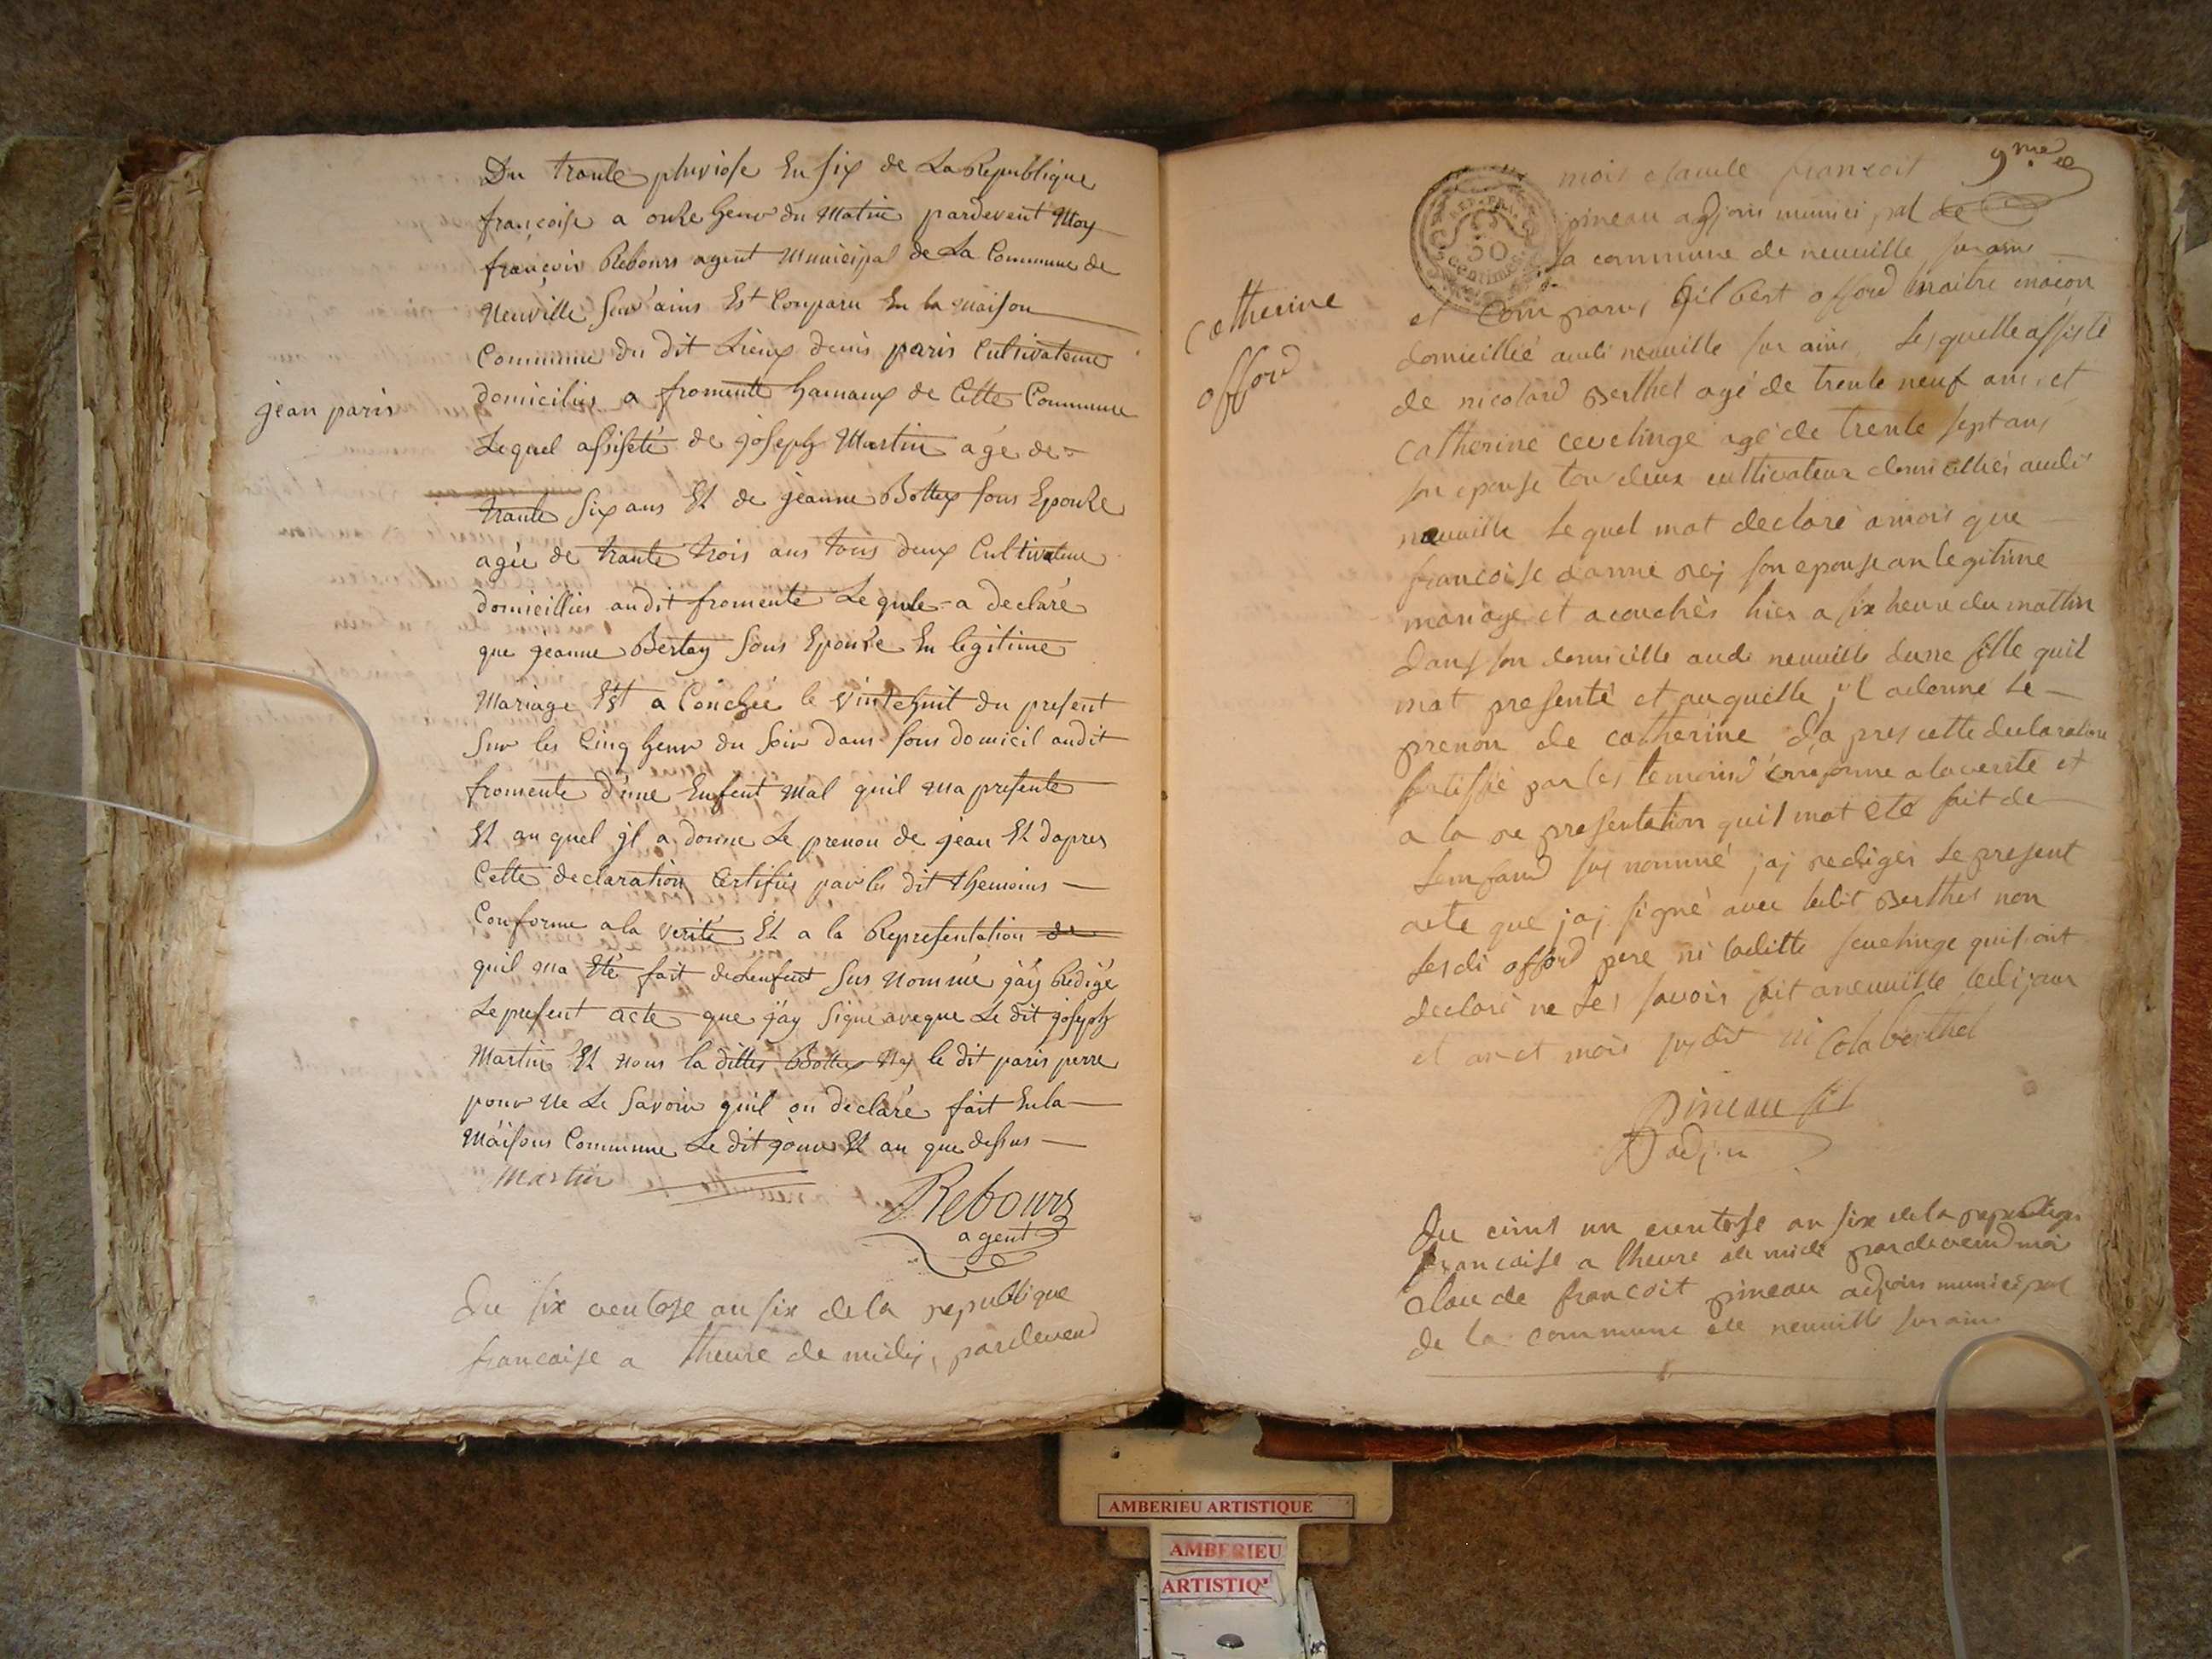 Du trante pluviose En six de La Republique
françoise a onze heur du Matin pardevent Moy
françois Rebours agent Municipal de La Commune de
Neuville Sur ains Est Conparu En la Maison
Commune du dit Lieux denis paris Cultivateur
jean paris
domicilies a fromente hamaux de Cette Commune
Lequel assisété de joseph Martin agé de
trante six ans Et de jeanne Bottex sons Epouze
agée de trante trois ans tous deux Cultivateur
domicillies audit fromente Lequele a declaré
que jeanne Bertay sons Epouze En legitime
Mariage Est a Couchée le vintehuit du present
sur les Cinq heur du soir dans sons domicil audit
fromente d'une Enfent Mal quil Ma presente
Et au quel jl a donne Le prenon de jean Et dapres
Cette declaration Certifiés par les dit themoins
Conforme a la verité Et a la Representation de
quil Ma Été fait de Lenfent sus Nommé j'ay Redigé
Le present acte que j'ay signé aveque Le dit joseph
Martin Et Nous la dittes Bottex Ny le dit paris perre
pour Ne Le savoir quil on declaré fait En la
Maisons Commune Le dit jour Et an que dessus
Martin
Rebours
agent
Du six ventose an six de la republique
francaise a lheure de midis, pardevend
9me
mois claude francoit
pineau adjoin municipal de
la commune de neuville sur ain
REP. FRA.
50
centimes
et Comparus Gilbert offord maitre maçon
Catherine
offord
domicillié audi neuville sur ains Lesquelle assisté
de nicolard Berthet agé de trente neuf ans et
Catherine cevelinge agé de trente sept ans
son epouse tou deux cultivateur domicilliés audi
neuville Lequel mat declaré amois que
francoise danne rey son epouse an legitime
mariage et acouchés hier a six heure du mattin
Dans son domicille audi neuville dune fille quil
mat presenté et auquelle jl adonné Le
prenon de catherine d'a pres cette declaration
sertifié par les temoins conforme a laverité et
a la representation quil mat été fait de
Lemfand sus nommé jaj rediges Le present
acte que jaj signé avec ledit Berthet non
Lesdi offord pere ni laditte seuelinge quil ont
declaré ne Les savois fait aneuville ledi jour
et an et mois susdit nicola berthet
pineau fils
adjoin
Du vint un ventose an six de la republique
francaise a lheure de midi pardevend moi
Claude francoit pineau adjoin municipal
de la commune de neuville sur ain
AMBERIEU ARTISTIQUE
AMBERIEU
ARTISTIQ